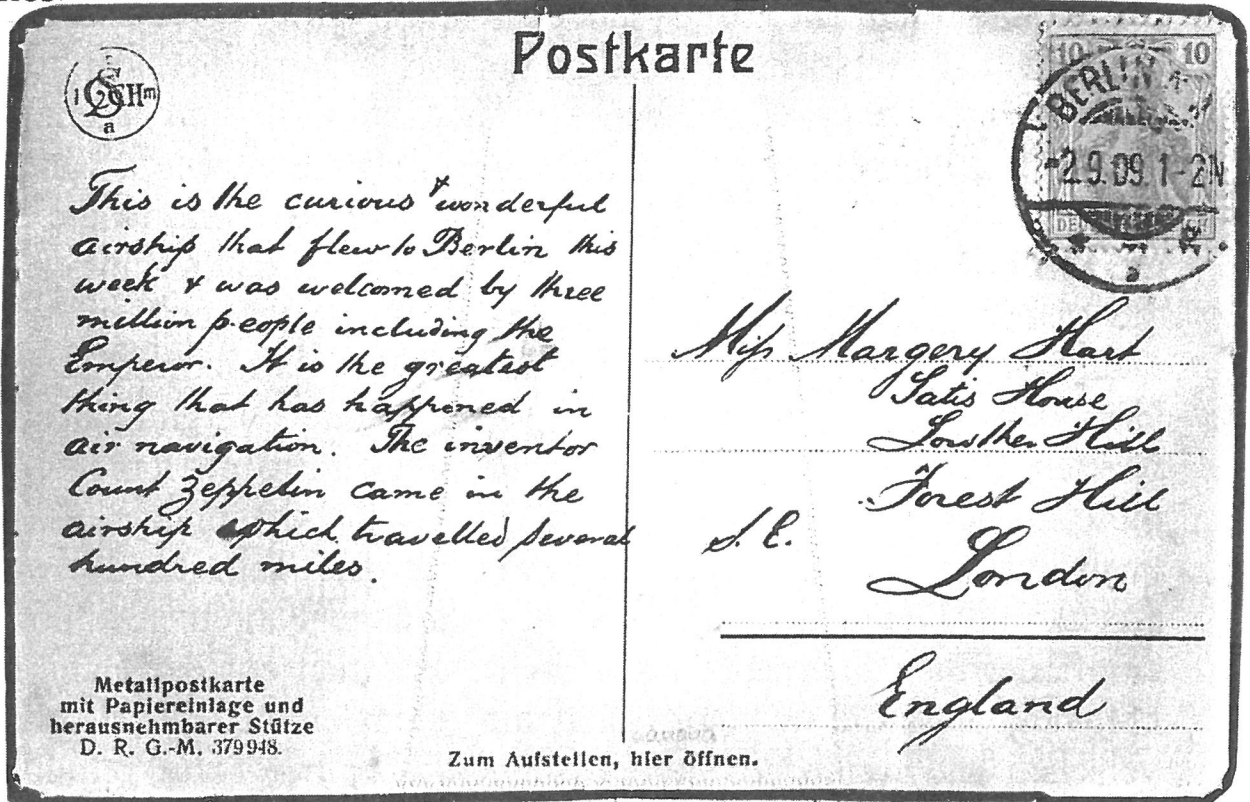 Postkarte
10 10
BERLIN
-2.9.09.1-2N
a
This is the curious & wonderful
airship that flew to Berlin this
week & was welcomed by three
million people including the
Emperor. It is the greatest
thing that has happened in
air navigation. The inventor
Count Zeppelin came in the
airship which travelled several
hundred miles.
Miss Margery Hart
Satis House
Lowther Hill
Forest Hill
S.E. London
England
Metallpostkarte
mit Papiereinlage und
herausnehmbarer Stütze
D. R. G.-M. 379948.
Zum Aufstellen, hier öffnen.